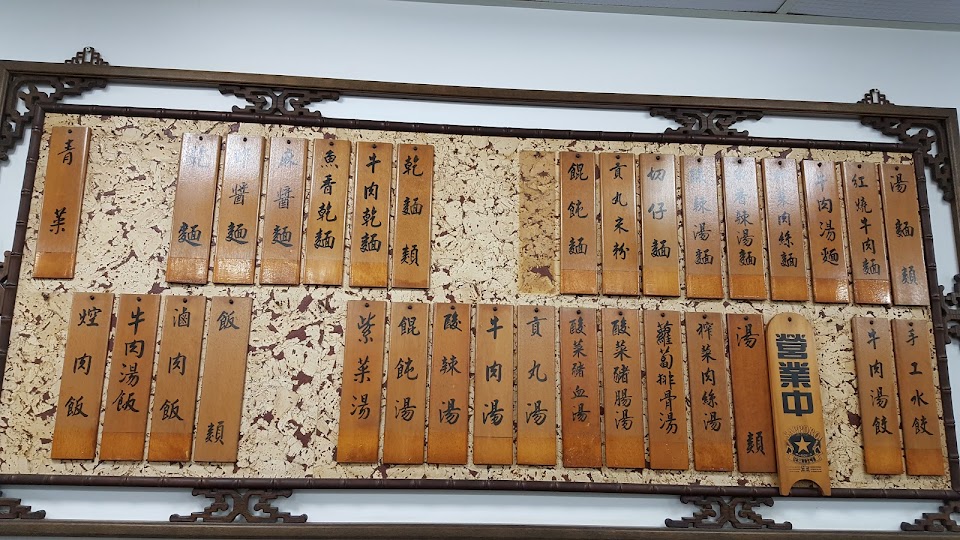 湯麵類
紅燒牛肉麵
牛肉湯麵
榨菜肉絲麵
香辣湯麵
酸辣湯麵
切仔麵
貢丸米粉
餛飩麵
乾麵類
牛肉乾麵
魚香乾麵
麻醬麵
醬麵
麵
青菜
手工水餃
牛肉湯餃
營業中
湯類
榨菜肉絲湯
蘿蔔排骨湯
酸菜豬腸湯
酸菜豬血湯
貢丸湯
牛肉湯
酸辣湯
餛飩湯
紫菜湯
飯類
滷肉飯
牛肉湯飯
焢肉飯